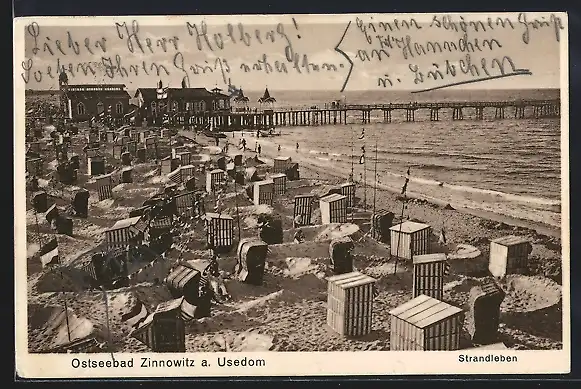 Lieber Herr Holberg!
Soeben Ihren Gruß erhalten.
Einen schönen Gruß
an Hannchen
u. Bübchen
Ostseebad Zinnowitz a. Usedom
Strandleben